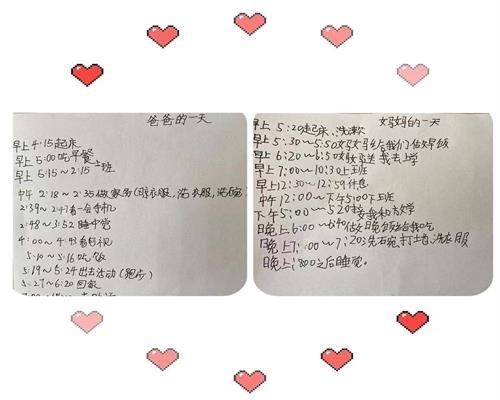 爸爸的一天
早上4:15起床
早上5:00吃早餐
早上6:15~2:15上班
中午2:18~2:35做家务(晾衣服,洗衣服,洗碗)
2:39~2:47看一会手机
2:48~3:52睡中觉
4:00~4:43看电视
5:10~5:16吃饭
5:19~5:24出去活动(跑步)
5:27~6:20回家
妈妈的一天
早上5:20起床、洗漱
早上5:30~5:50妈妈给我们做早饭
早上6:20~6:50妈妈送我去上学
早上7:00~10:30上班
早上12:30~12:59休息
中午12:00~下午5:00下班
下午5:00~5:20接我和放学
晚上6:00~6:40做晚饭给我吃
晚上7:00~7:20洗碗,打扫,洗衣服
晚上:800之后睡觉。